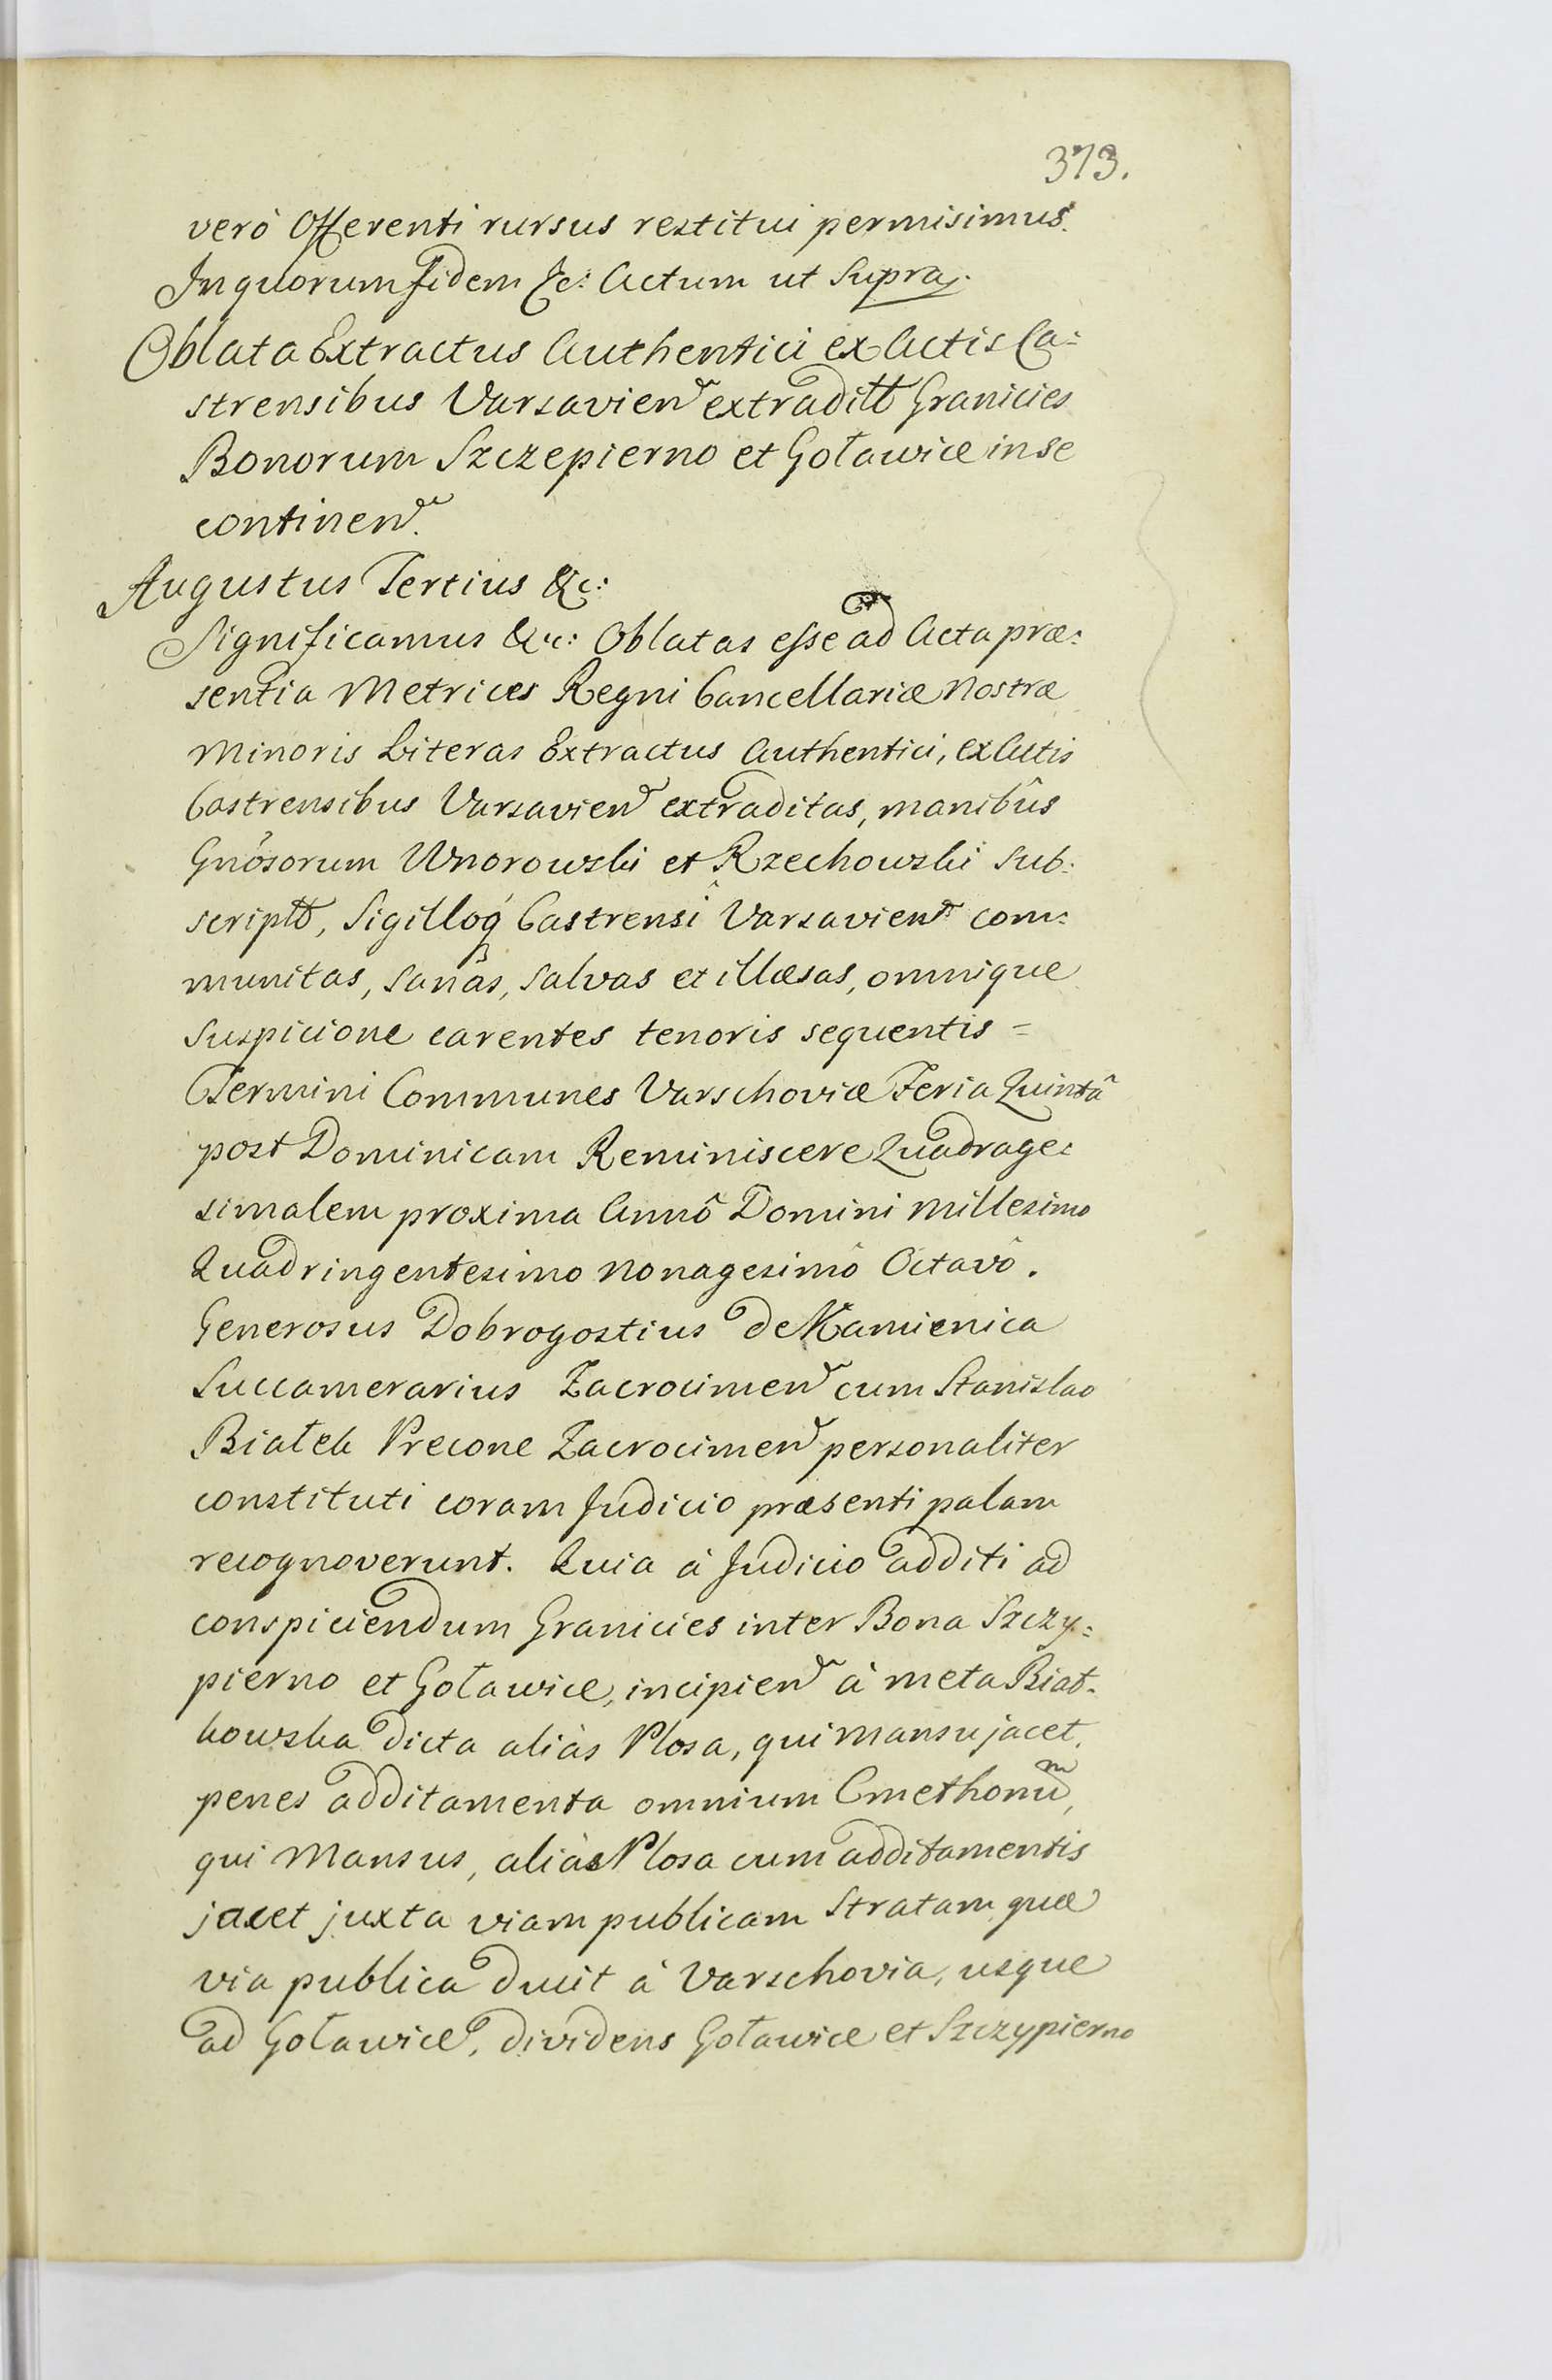 373.
verò Offerenti rursus restitui permisimus.
In quorum fidem &c: Actum ut Supra.
Oblata Extractus Authentici ex Actis Ca:
strensibus Varsavien extraditt Granicies
Bonorum Szczepierno et Goławice in se
continen.
Augustus Tertius &c:
Significamus &c: Oblatas esse ad Acta præ:
sentia Metrices Regni Cancellariæ Nostræ
Minoris Literas Extractus Authentici, ex Actis
Castrensibus Varsavien extraditas, manibûs
Gnôsorum Wnorowski et Rzechowski Sub:
scriptt, Sigilloq́ Castrensî Varsavien com:
munitas, Sanâs, Salvas et illæsas, omnique
Suspicione carentes tenoris sequentis =
Termini Communes Varschoviæ Feria Quintâ
post Dominicam Reminiscere Quadrage:
simalem proxima Annô Domini Millesimo
Quadringentesimo Nonagesimô Octavô.
Generosus Dobrogostius de Kamienica
Succamerarius Zacrocimen cum Stanislao
Białek Precone Zacrocimen personaliter
constituti coram Judicio præsenti palam
recognoverunt. Quia à Judicio additi ad
conspiciendum Granicies inter Bona Szczy:
pierno et Goławice, incipien à meta Biał-
kowska dicta aliàs Płosa, qui Mansu jacet,
penes additamenta omnium Cmethonum,
qui Mansus, aliàs Płosa cum additamentis
jacet juxta viam publicam Stratam quæ
via publica ducit à Varschovia, usque
ad Goławice, dividens Goławice et Szczypierno